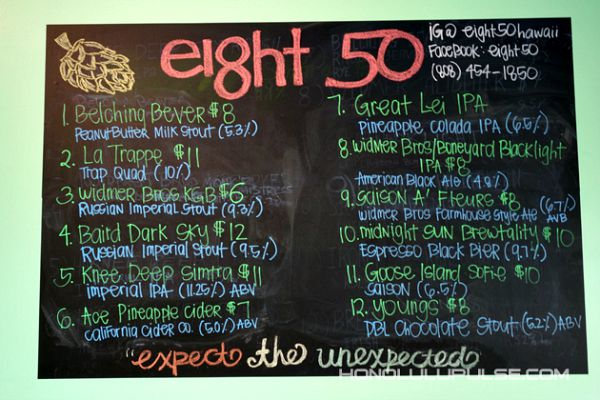 eight 50
IG@ eight50hawaii
Facebook: eight50
(808) 454-1850
1. Belching Bever $8
Peanut Butter Milk Stout (5.3%)
2. La Trappe $11
Trap Quad (10%)
3. Widmer Bros KGB $6
Russian Imperial Stout (9.3%)
4. Baird Dark Sky $12
Russian Imperial Stout (9.5%)
5. Knee Deep Simtra $11
Imperial IPA (11.25%) ABV
6. Ace Pineapple Cider $7
California Cider Co. (5.0%) ABV
7. Great Lei IPA
Pineapple Colada IPA (6.5%)
8. Widmer Bros/Boneyard Blacklight
IPA $8
American Black Ale (4.8%)
9. Saison A' Fleurs $8
Widmer Bros Farmhouse Style Ale (6.7%) ABV
10. Midnight Sun Brewtality $10
Espresso Black Bier (9.7%)
11. Goose Island Sofie $10
Saison (6.5%)
12. Youngs $8
DBL Chocolate Stout (5.2%) ABV
"expect the unexpected
HONOLULUPULSE.COM